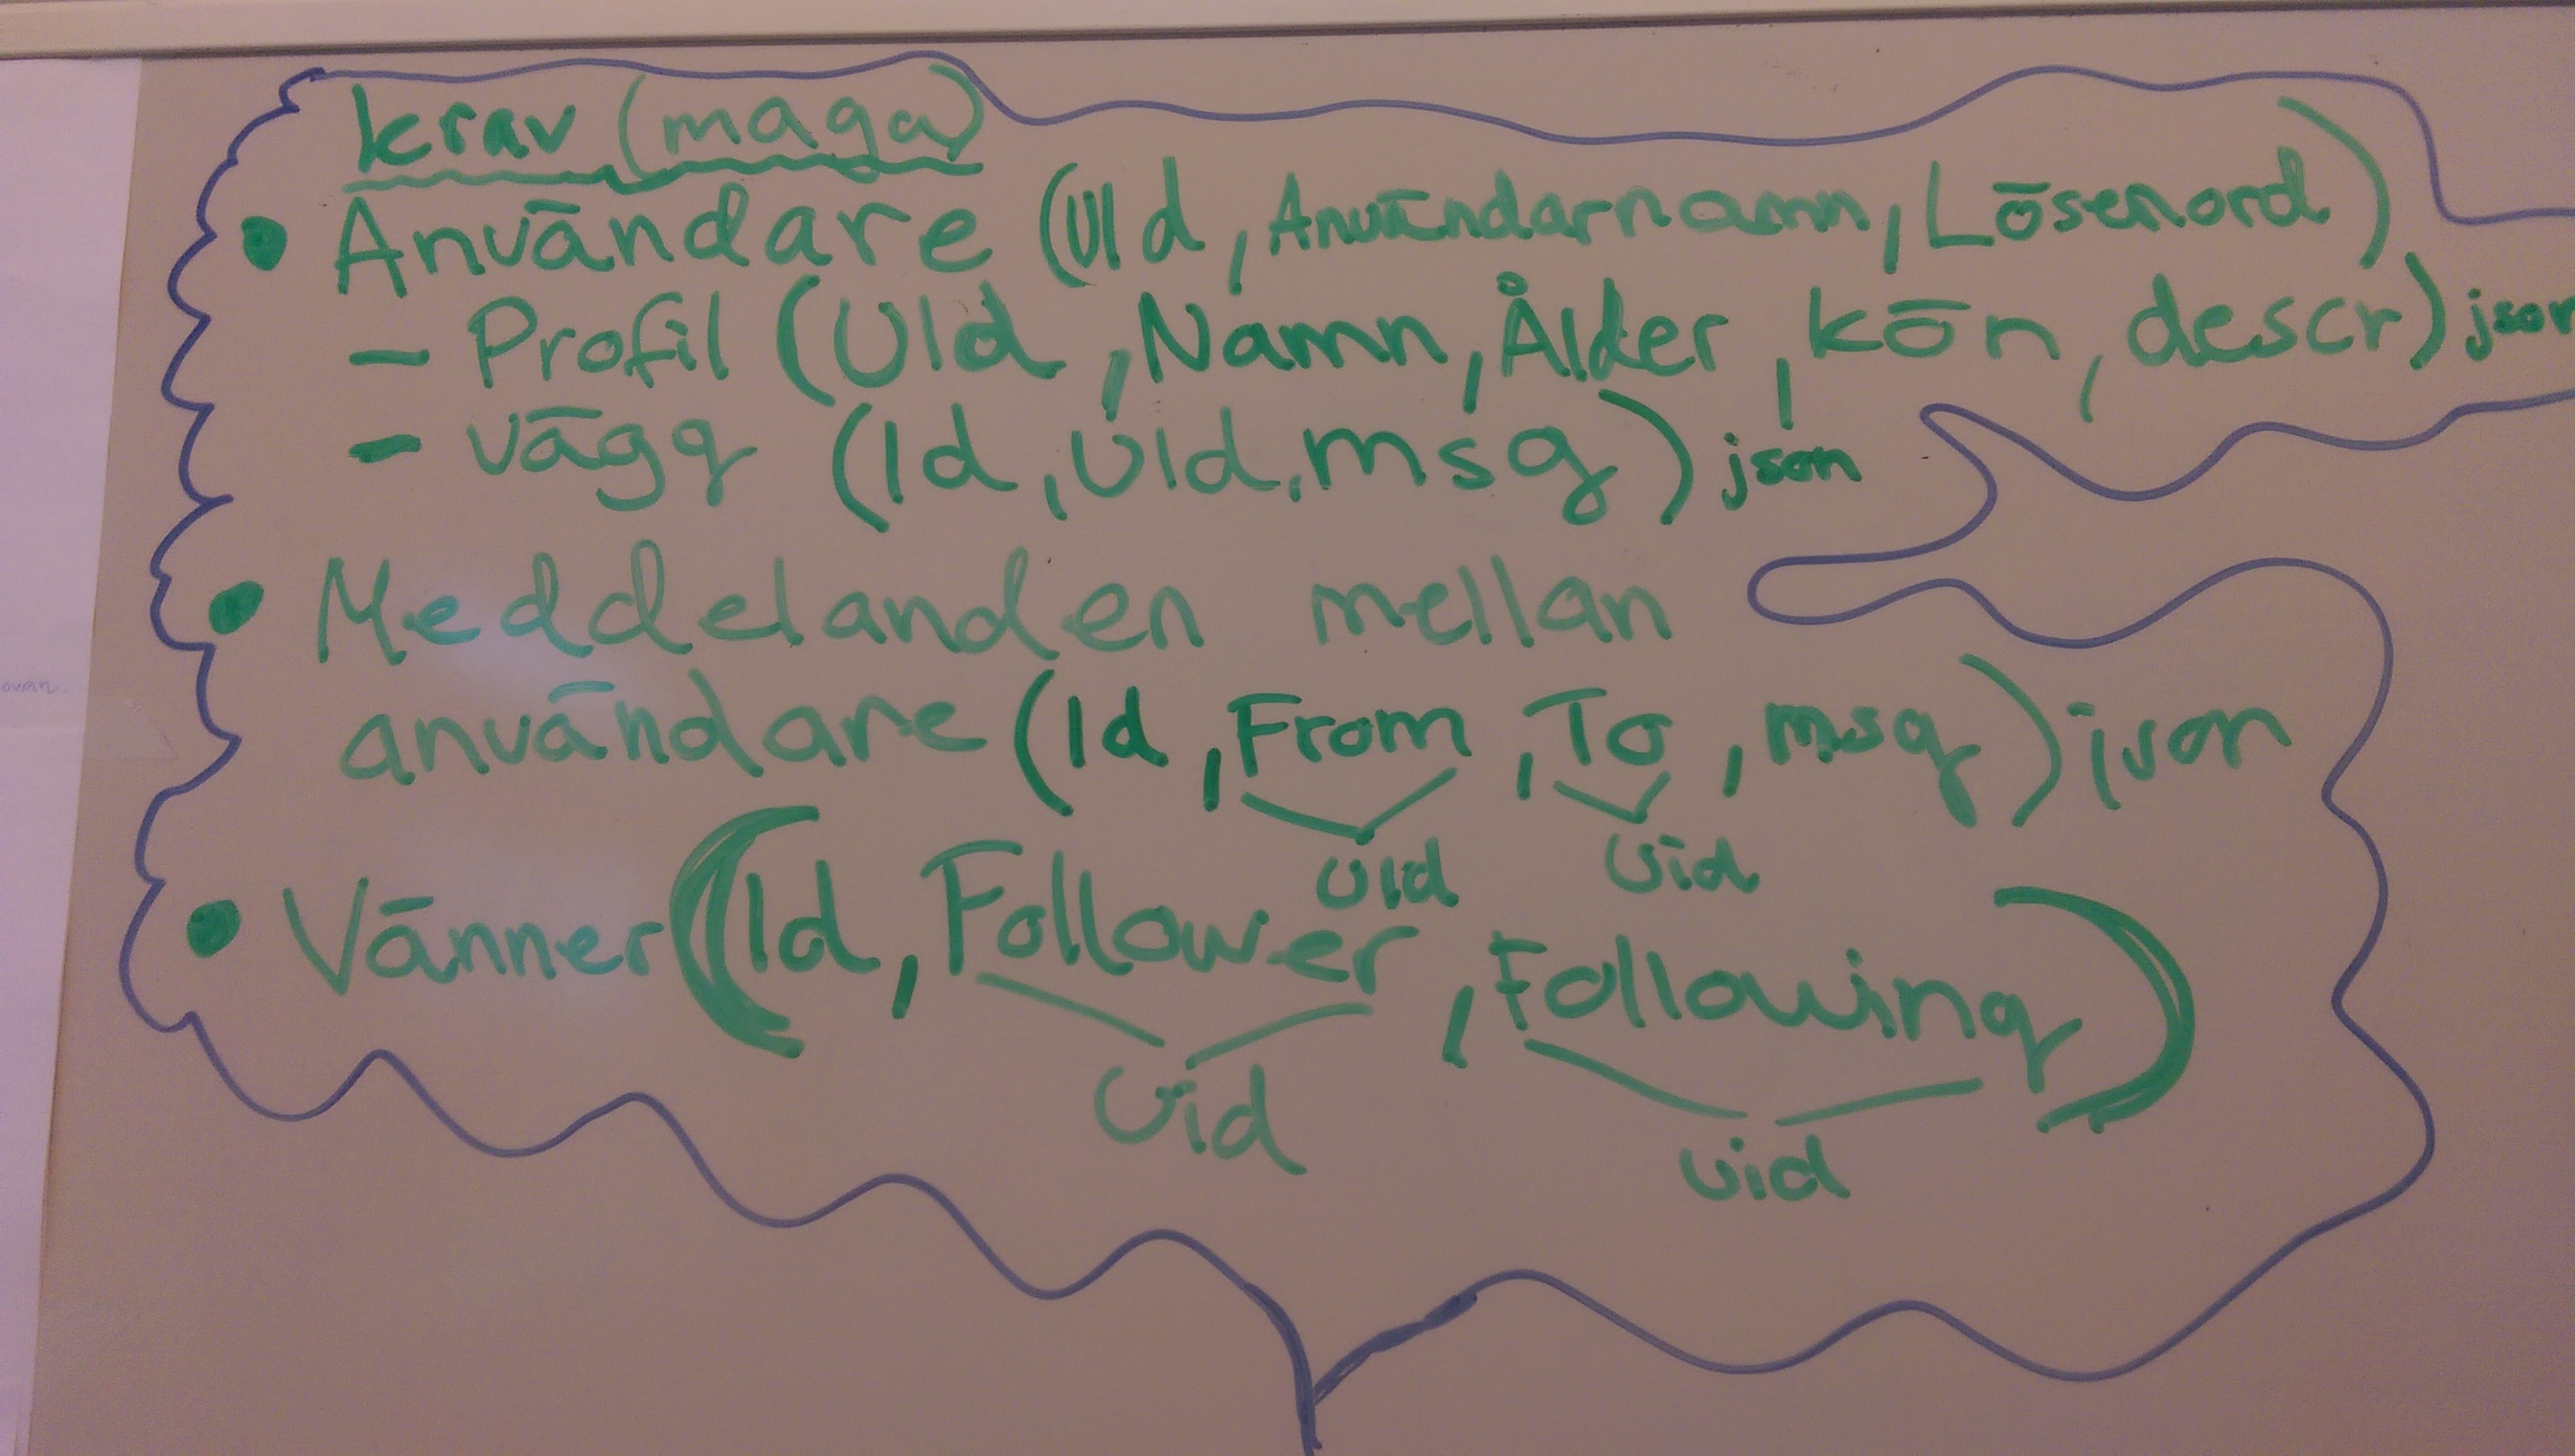 krav (maga)
• Användare (UId, Användarnamn, Lösenord)
- Profil (UId, Namn, Ålder, kön, descr) json
- vägg (Id, UId, msg) json
• Meddelanden mellan
användare (Id, From, To, msg) json
UId Uid
• Vänner (Id, Follower, Following)
Uid Uid